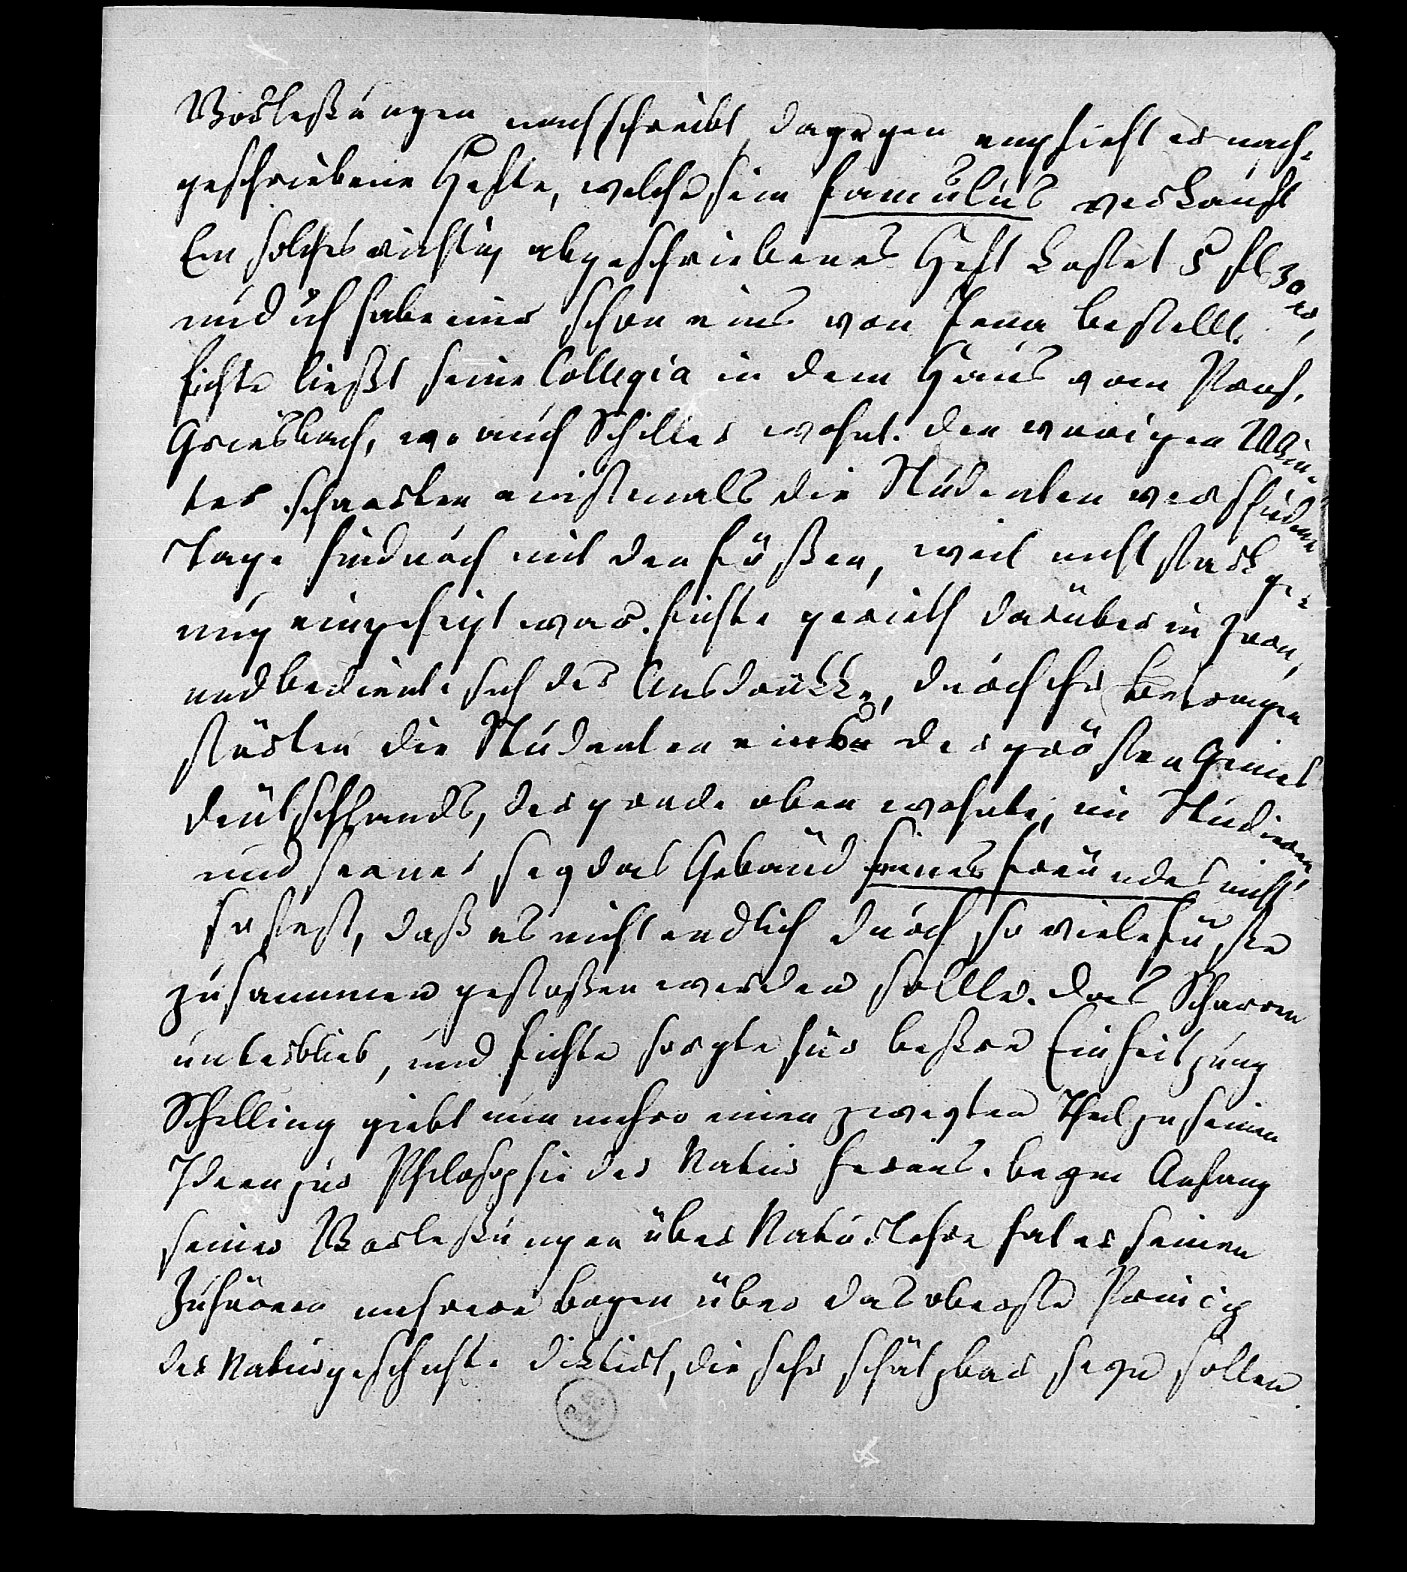 Vorleßungen nachschreibt, dagegen empfielt er nach-
geschriebene Hefte, welche sein Famulus verkauft
Ein solches richtig abgeschriebenes Heft kostet 5 fl 30 xr,
und ich habe mir schon eins von Jena bestellt.
Fichte ließt seine Collegia in dem Haus vom Prof.
Griesbach, wo auch Schiller wohnt. Den vorigen Win-
ter scharrten einstmals die Studenten verschiedene
Tage hindurch mit den Füßen, weil nicht stark ge-
nug eingeheizt war. Fichte gerieth darüber in Zorn,
und bediente sich des Ausdrucks, durch ihr Betragen
störten die Studenten eines der grösten Genies
Deutschlands, der grade oben wohnte, im Studieren,
und ferner sey das Gebäud seines Freundes nicht
so fest, daß es nicht endlich durch so viele Füße
zusammen gestoßen werden sollte. Das Scharren
unterblieb, und Fichte sorgte für beßre Einheitzung
Schelling giebt nun mehro einen zweyten Theil zu seinen
Ideen zur Philosophie der Natur heraus. beym Anfang
seiner Vorleßungen über Naturlehre hat er seinen
Zuhörern mehrere Bogen über das oberste Princip
der Naturgeschichte dictirt, die sehr schätzbar seyn sollen.